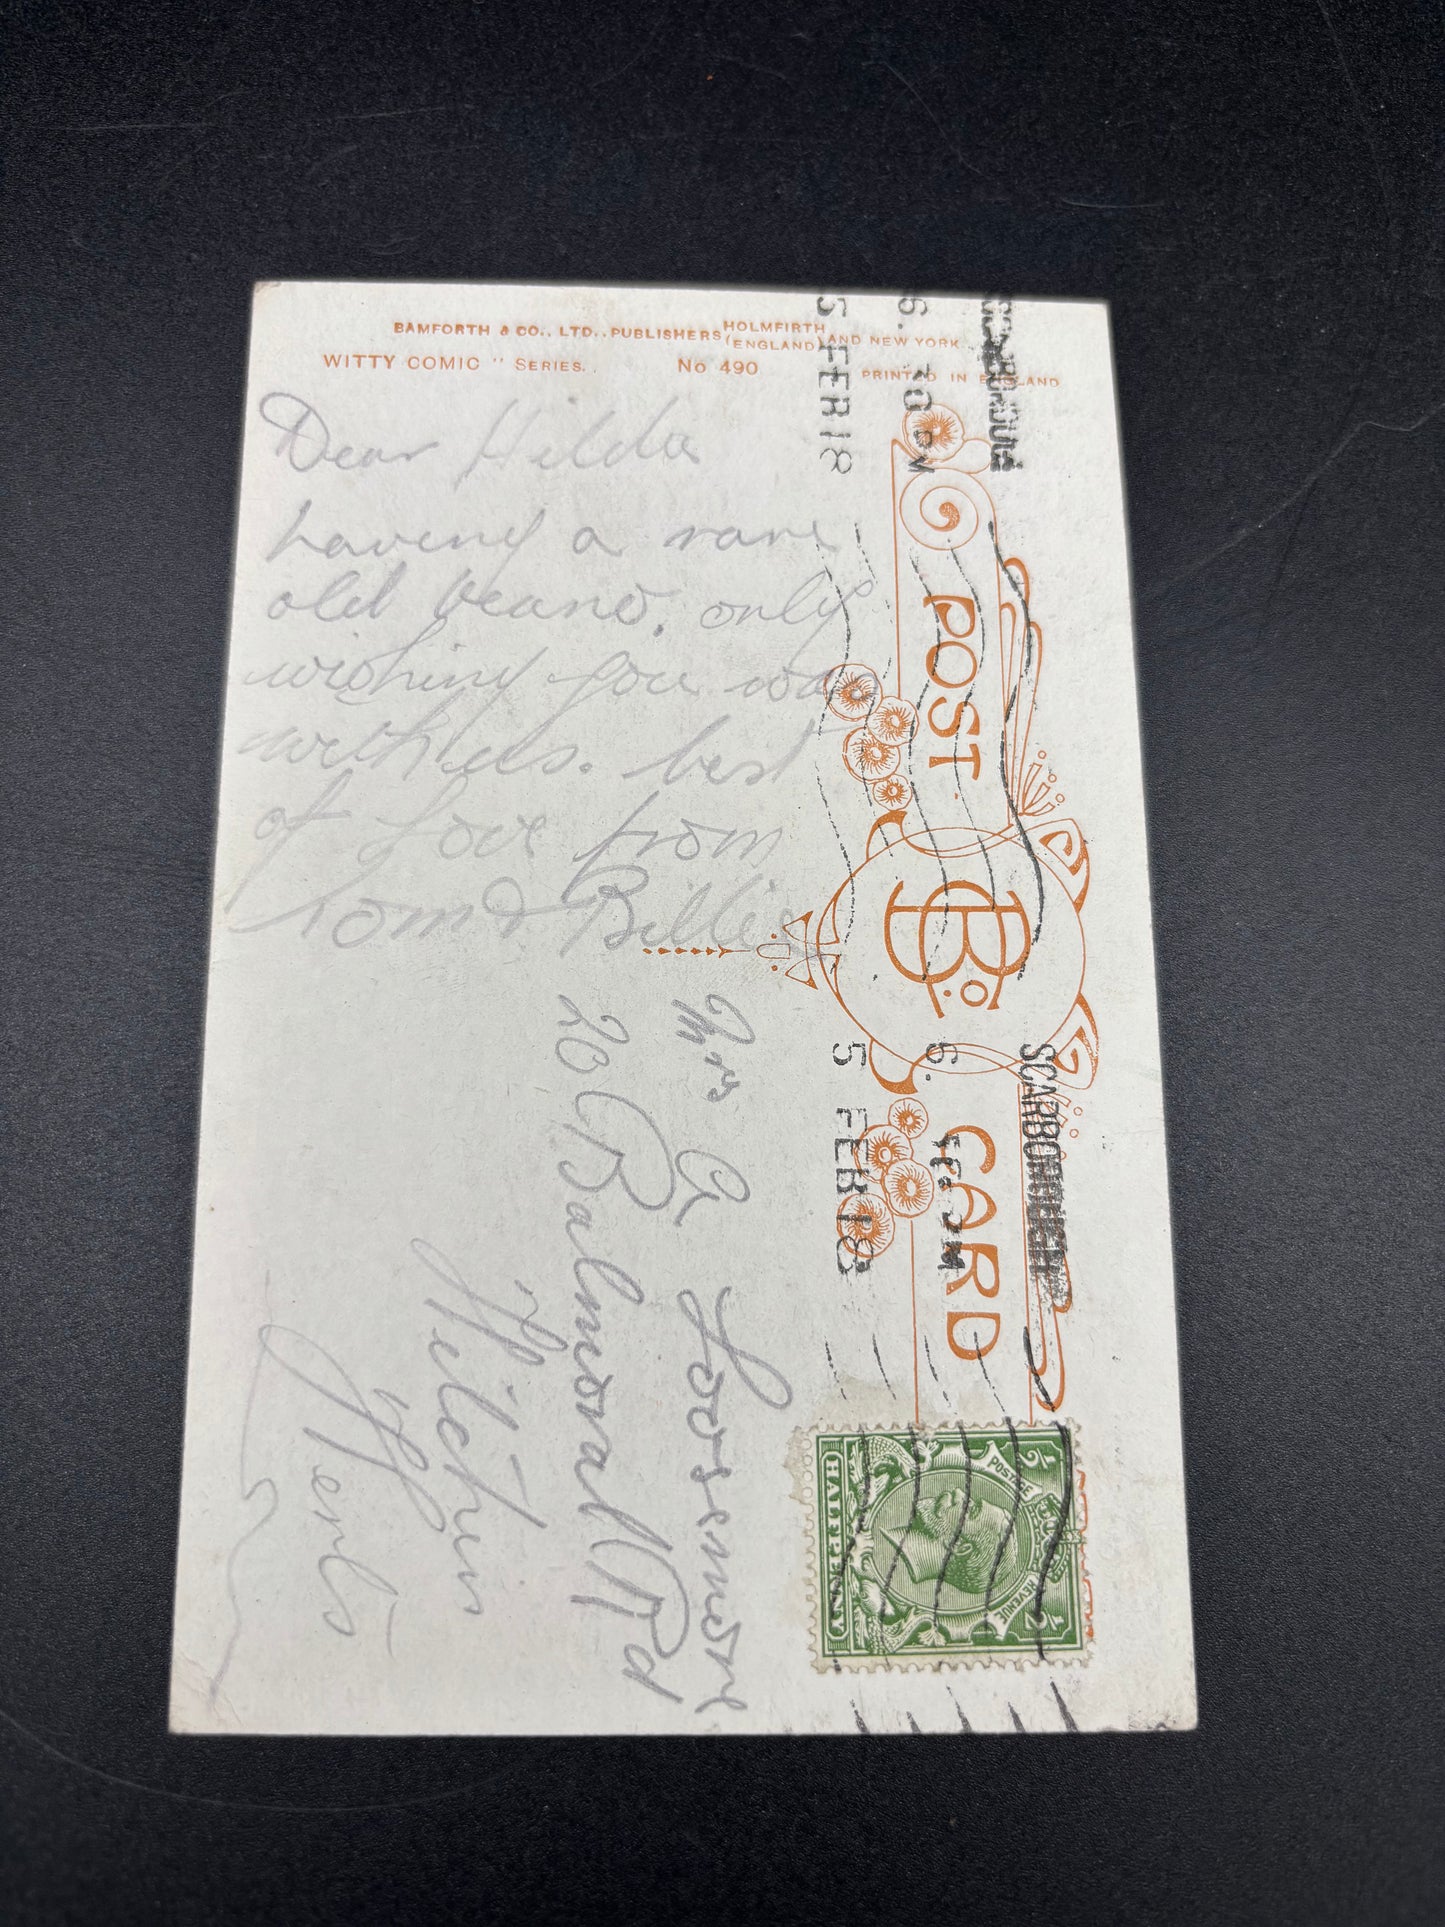 BAMFORTH & CO., LTD., PUBLISHERS HOLMFIRTH (ENGLAND) AND NEW YORK
WITTY COMIC " SERIES. No 490 PRINTED IN ENGLAND
Dear Hilda
having a rare
old beano, only
wishing you was
with us. best
of love from
Tom & Billie
POST CARD
B & Co
SCARBOROUGH
6. 30 PM
5 FEB 18
SCARBOROUGH
6.
5 FEB 18
Mrs G Loosemore
20 Balmoral Rd
Hitchin
Herts
POSTAGE REVENUE
½ ½
HALFPENNY